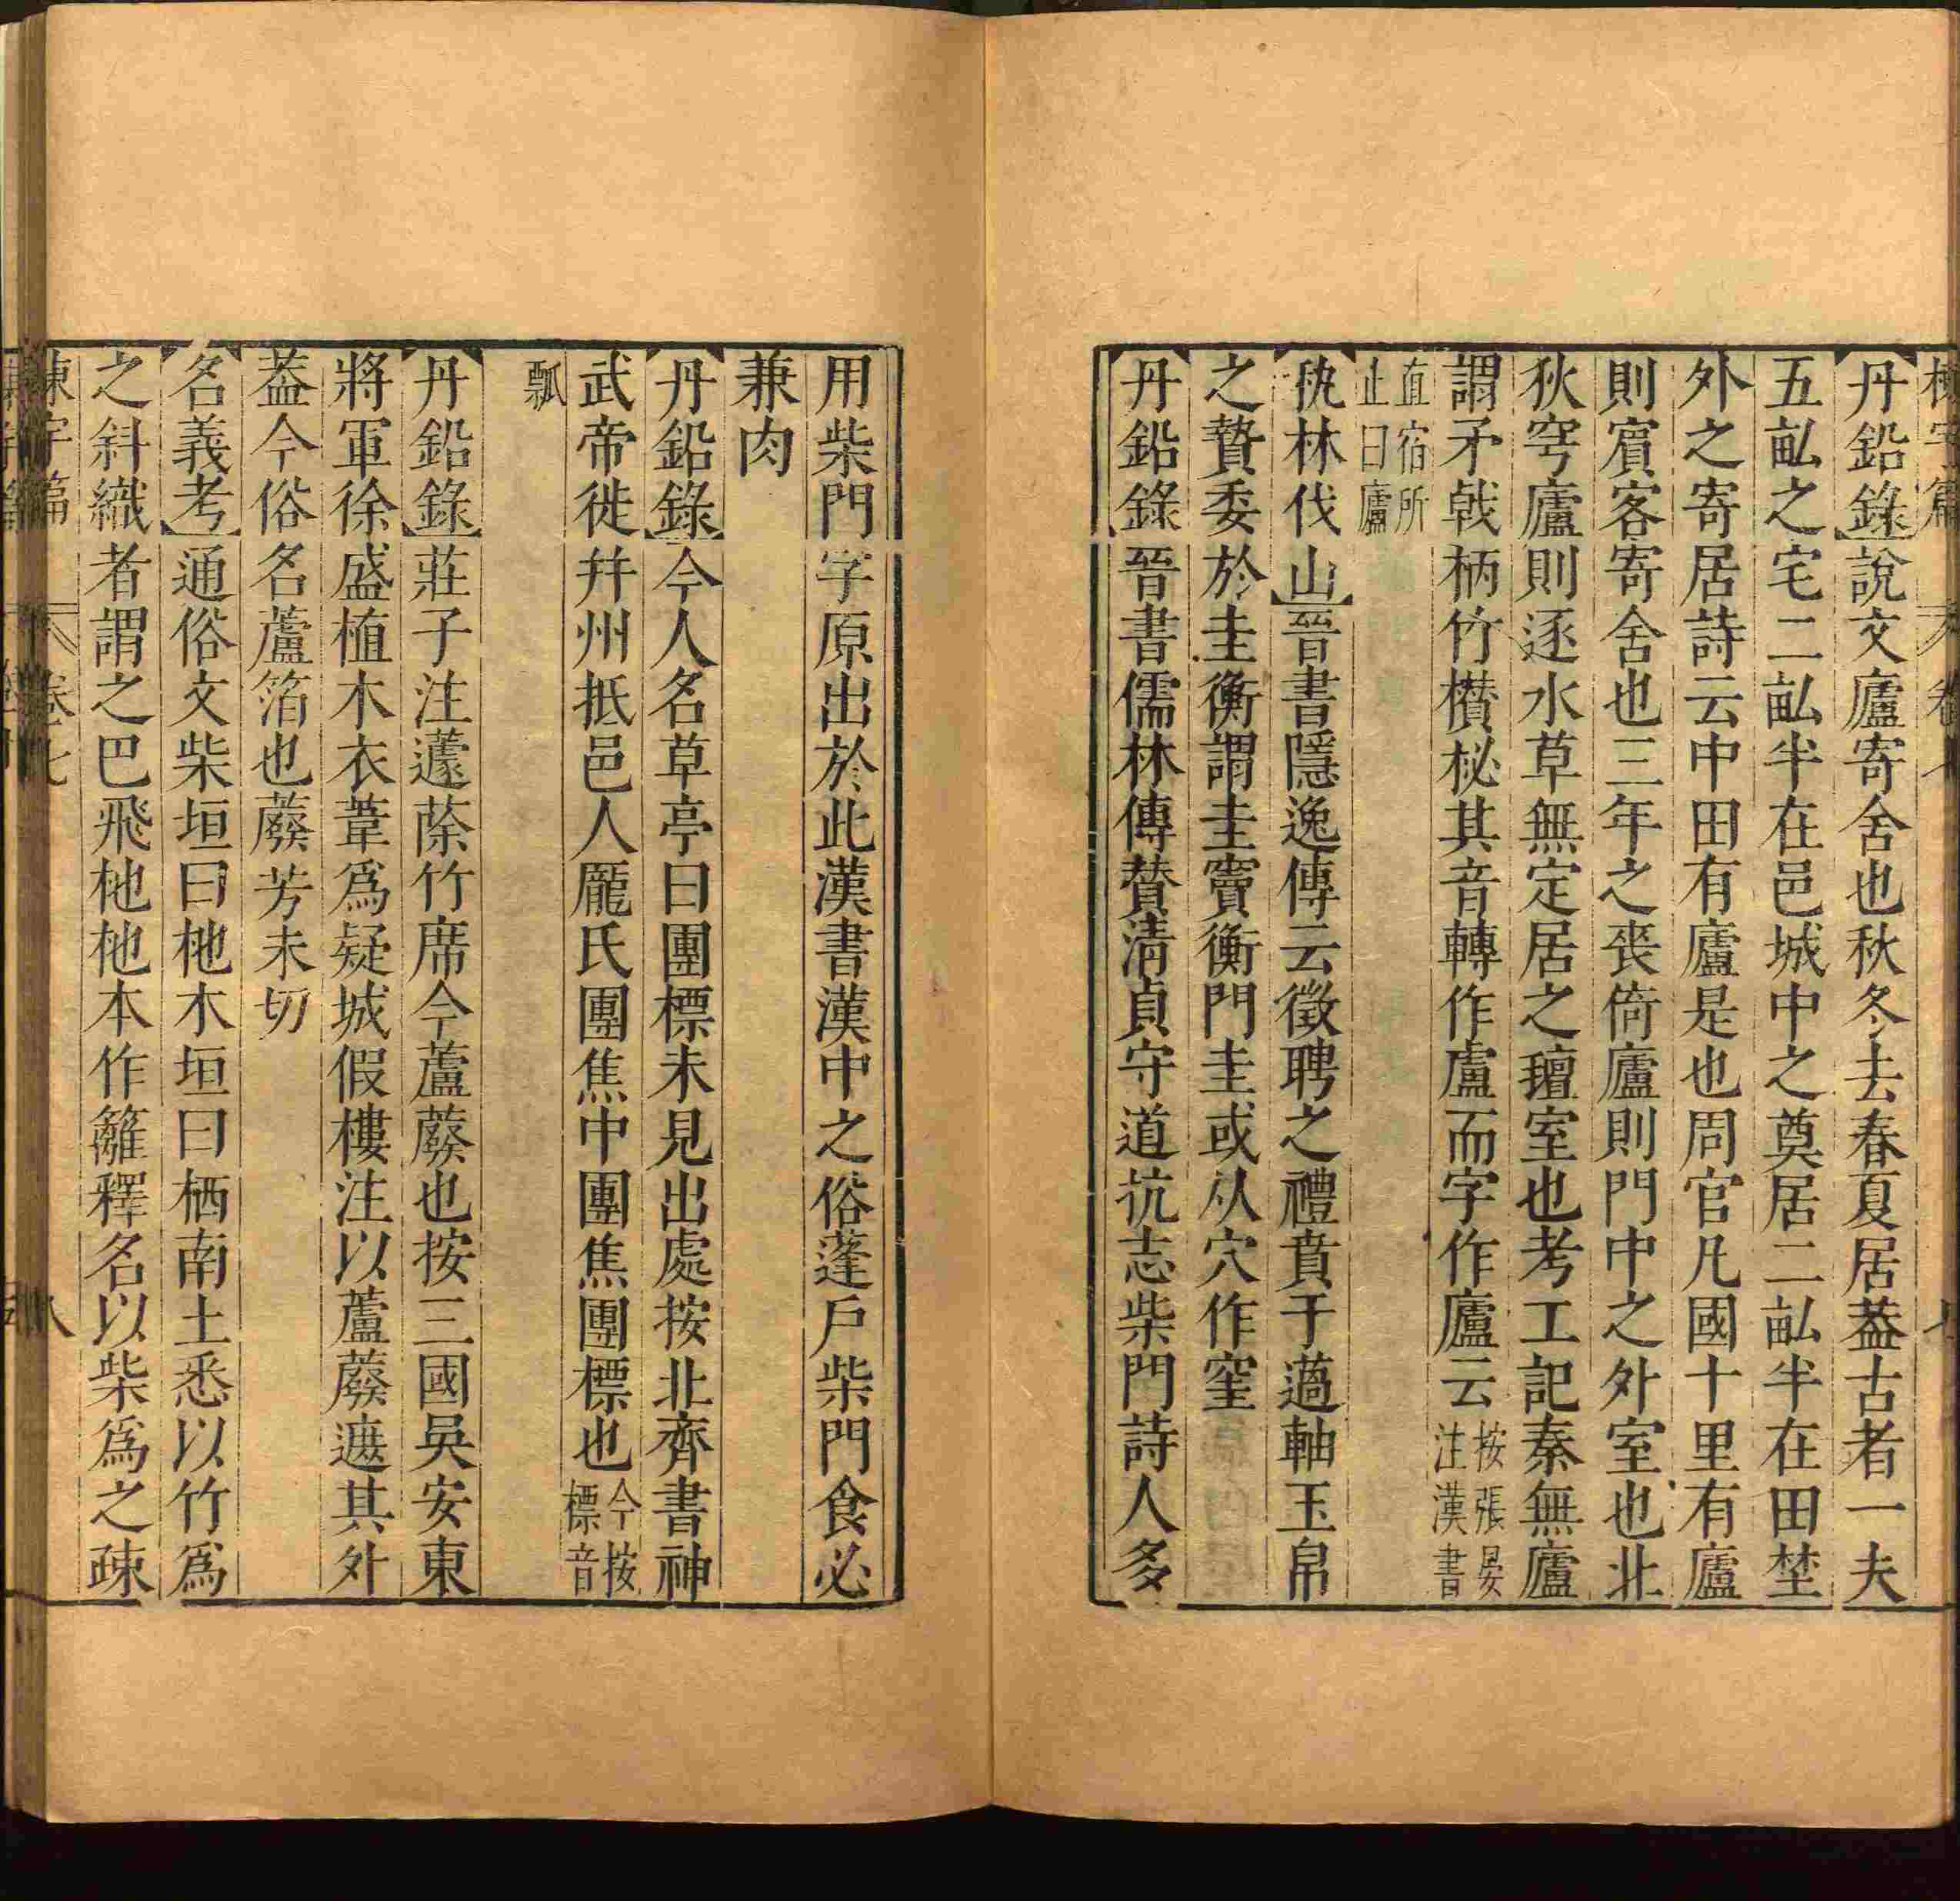 丹鉛錄說文廬寄舍也秋冬去春夏居葢古者一夫
五畆之宅二畆半在邑城中之奠居二畆半在田埜
外之寄居詩云中田有廬是也周官凡國十里有廬
則賔客寄舍也三年之喪倚廬則門中之外室也北
狄穹廬則逐水草無定居之氊室也考工記秦無廬
謂矛戟柄竹欑柲其音轉作盧而字作廬云按張晏注漢書
直宿所止曰廬
秇林伐山晉書隱逸傳云徵聘之禮賁于薖軸玉帛
之贄委於圭衡謂圭竇衡門圭或从穴作窐
丹鉛錄晉書儒林傳贊清貞守道抗志柴門詩人多
用柴門字原出於此漢書漢中之俗蓬戶柴門食必
兼肉
丹鉛錄今人名草亭曰團標未見出處按北齊書神
武帝徙幷州抵邑人龐氏團焦中團焦團標也今按標音
瓢
丹鉛錄莊子注蘧蒢竹席今蘆蕟也按三國吳安東
將軍徐盛植木衣葦爲疑城假樓注以蘆蕟遮其外
葢今俗名蘆箔也蕟芳未切
名義考通俗文柴垣曰杝木垣曰栖南土悉以竹爲
之斜織者謂之巴飛杝杝本作籬釋名以柴爲之疎